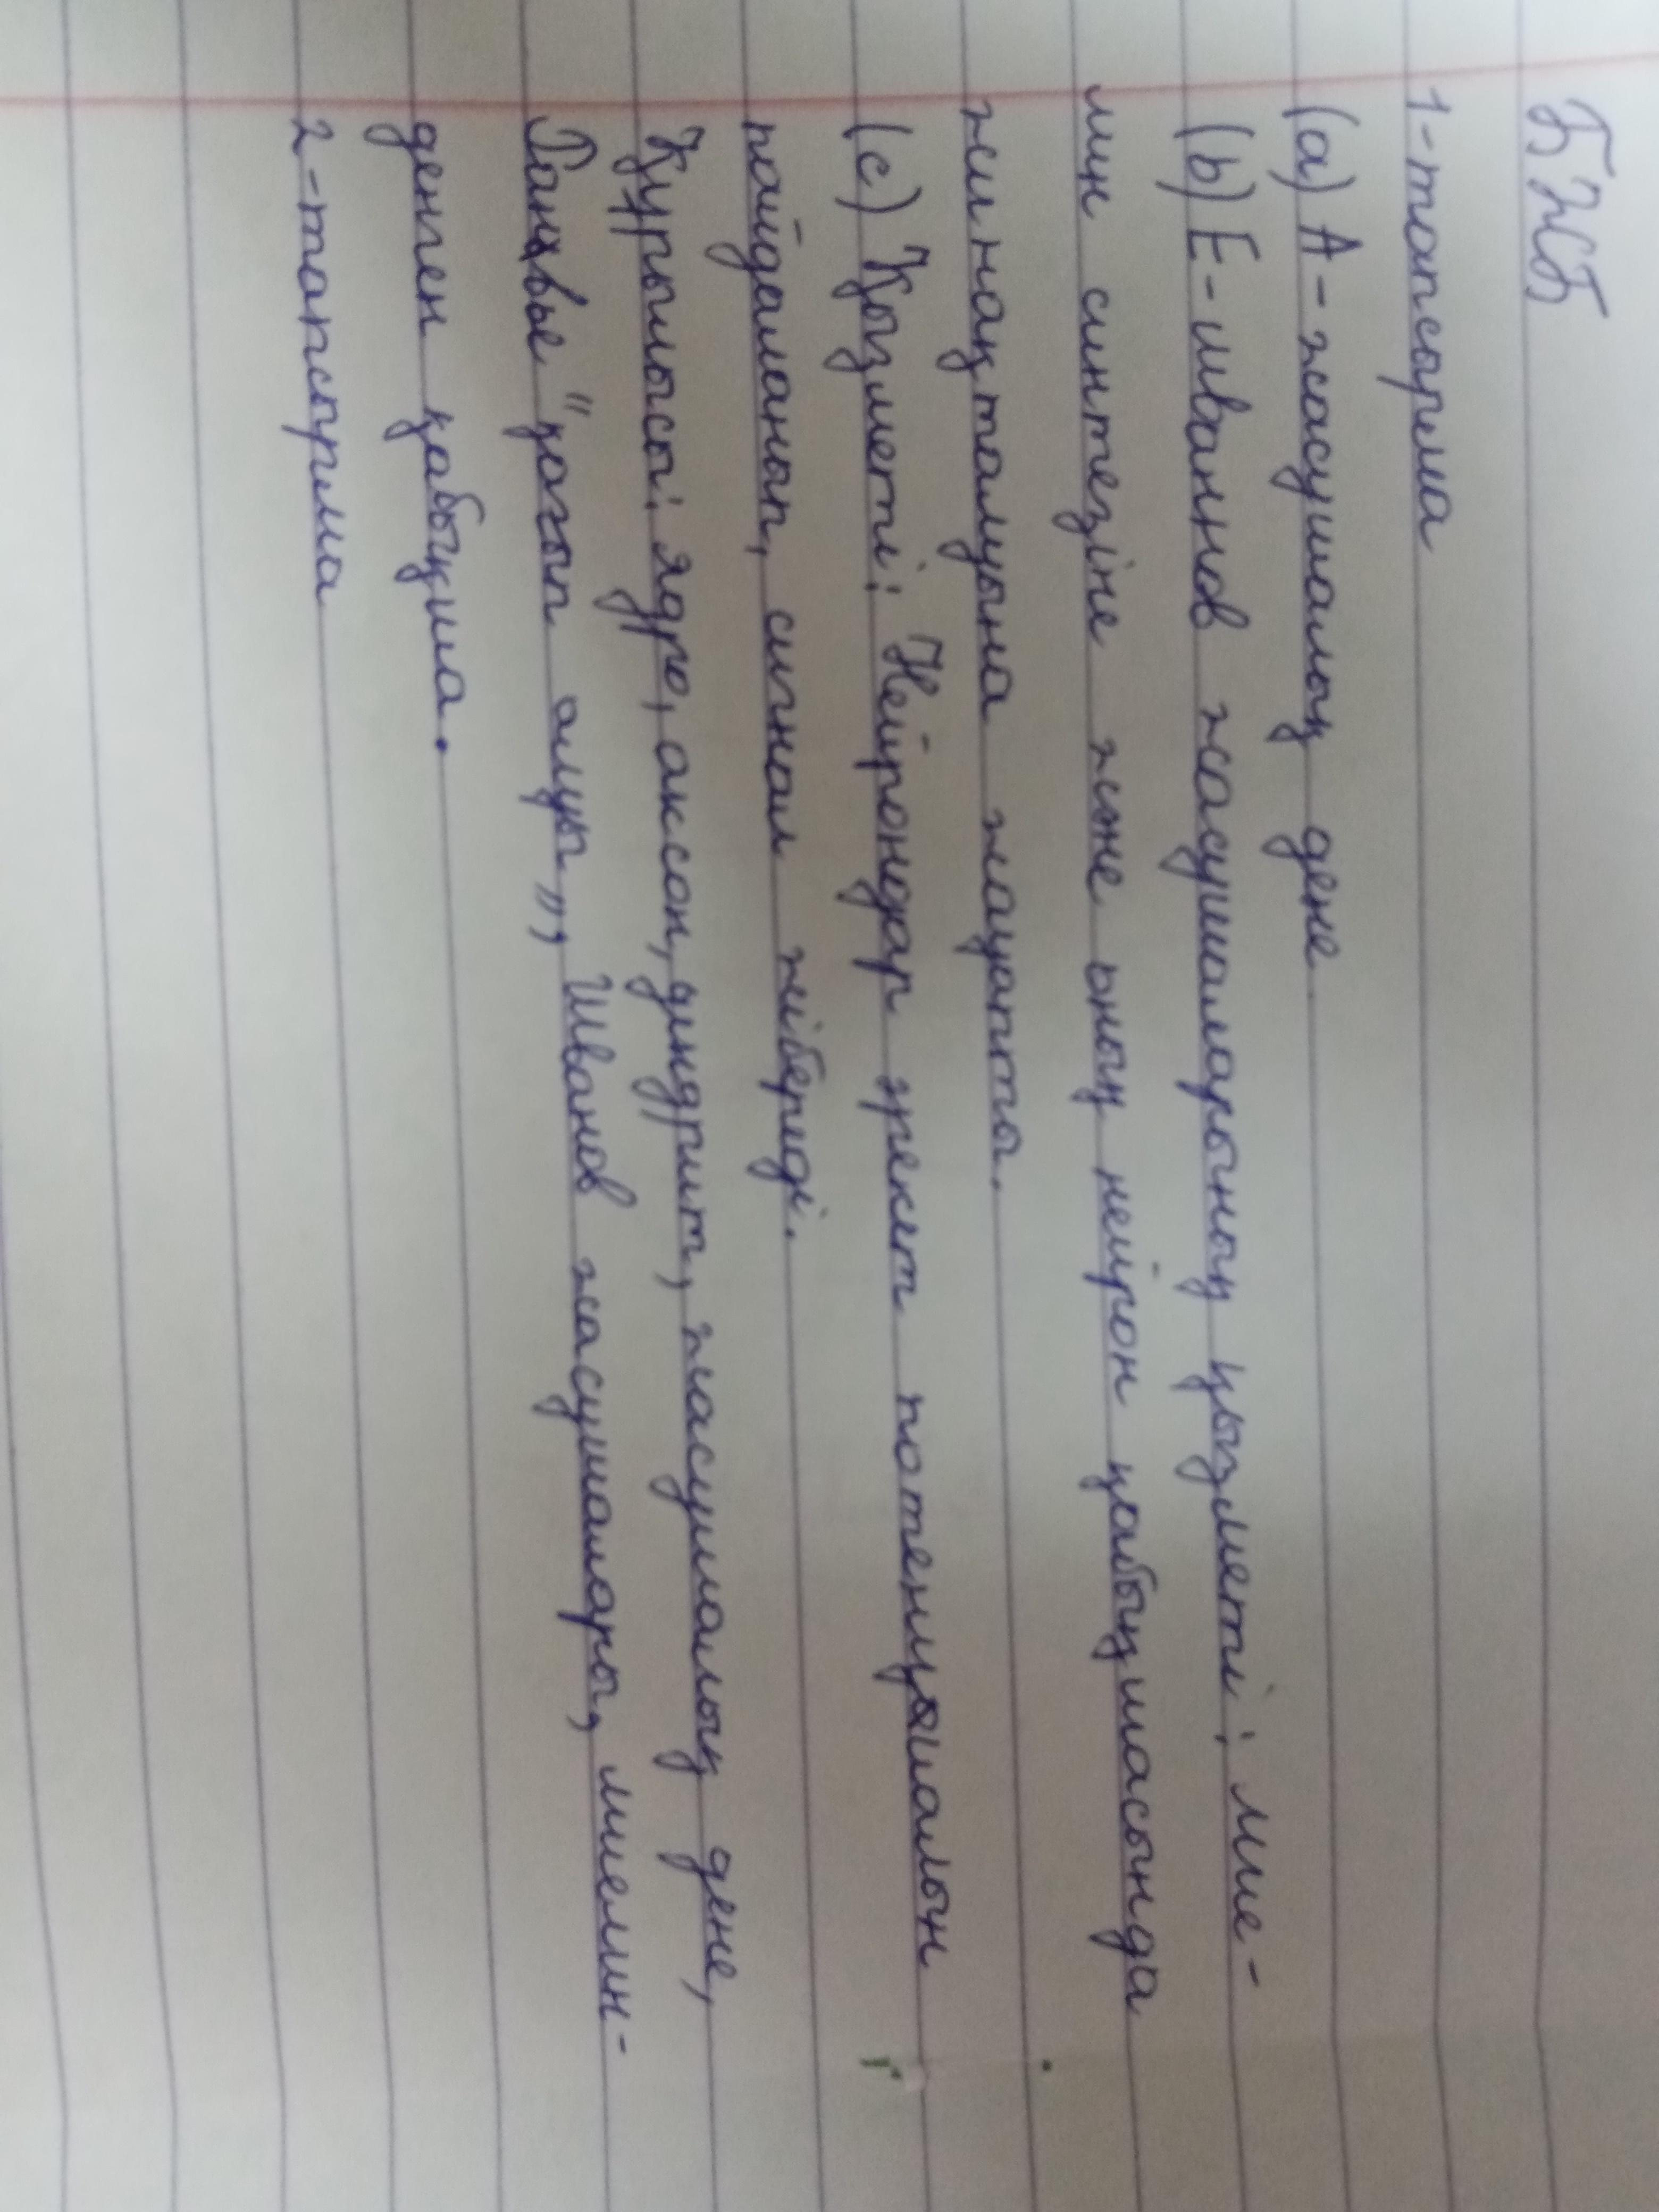 БЖБ
1-тапсырма
(а) А-жасушалық дене
(b) Е-шваннов жасушаларының қызметі: Мие-
лин синтезіне және оның нейрон қабықшасында
жинақталуына жауапты.
(с) Қызметі: Нейрондар әрекет потенциалын
пайдаланып, сигнал жібереді.
Құрылысы: ядро, аксон, дендрит, жасушалық дене,
Ранвье "қағып алуы", Шванов жасушалары, миелин-
денген қабықша.
2-тапсырма